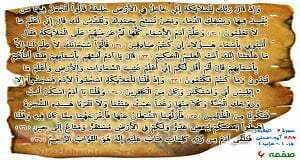 وَإِذْ قَالَ رَبُّكَ لِلْمَلَائِكَةِ إِنِّي جَاعِلٌ فِي الْأَرْضِ خَلِيفَةً قَالُوا أَتَجْعَلُ فِيهَا مَن
يُفْسِدُ فِيهَا وَيَسْفِكُ الدِّمَاءَ وَنَحْنُ نُسَبِّحُ بِحَمْدِكَ وَنُقَدِّسُ لَكَ قَالَ إِنِّي أَعْلَمُ مَا
لَا تَعْلَمُونَ وَعَلَّمَ آدَمَ الْأَسْمَاءَ كُلَّهَا ثُمَّ عَرَضَهُمْ عَلَى الْمَلَائِكَةِ فَقَالَ
أَنبِئُونِي بِأَسْمَاءِ هَؤُلَاءِ إِن كُنتُمْ صَادِقِينَ قَالُوا سُبْحَانَكَ لَا عِلْمَ لَنَا إِلَّا
مَا عَلَّمْتَنَا إِنَّكَ أَنتَ الْعَلِيمُ الْحَكِيمُ قَالَ يَا آدَمُ أَنبِئْهُم بِأَسْمَائِهِمْ فَلَمَّا أَنبَأَهُم
بِأَسْمَائِهِمْ قَالَ أَلَمْ أَقُل لَّكُمْ إِنِّي أَعْلَمُ غَيْبَ السَّمَاوَاتِ وَالْأَرْضِ وَأَعْلَمُ مَا
تُبْدُونَ وَمَا كُنتُمْ تَكْتُمُونَ وَإِذْ قُلْنَا لِلْمَلَائِكَةِ اسْجُدُوا لِآدَمَ فَسَجَدُوا إِلَّا
إِبْلِيسَ أَبَى وَاسْتَكْبَرَ وَكَانَ مِنَ الْكَافِرِينَ وَقُلْنَا يَا آدَمُ اسْكُنْ أَنتَ
وَزَوْجُكَ الْجَنَّةَ وَكُلَا مِنْهَا رَغَدًا حَيْثُ شِئْتُمَا وَلَا تَقْرَبَا هَذِهِ الشَّجَرَةَ
فَتَكُونَا مِنَ الظَّالِمِينَ فَأَزَلَّهُمَا الشَّيْطَانُ عَنْهَا فَأَخْرَجَهُمَا مِمَّا كَانَا فِيهِ وَقُلْنَا
اهْبِطُوا بَعْضُكُمْ لِبَعْضٍ عَدُوٌّ وَلَكُمْ فِي الْأَرْضِ مُسْتَقَرٌّ وَمَتَاعٌ إِلَى حِينٍ
فَتَلَقَّى آدَمُ مِن رَّبِّهِ كَلِمَاتٍ فَتَابَ عَلَيْهِ إِنَّهُ هُوَ التَّوَّابُ الرَّحِيمُ
صفحه ۶